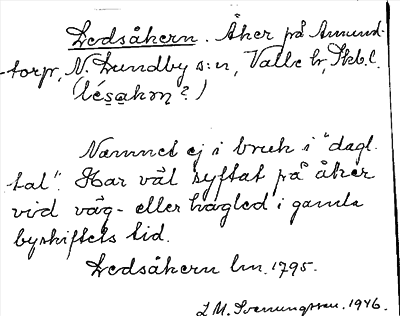 Ledsåkern. Åker på Amund-
-torp, N. Lundby s:n, Valle hd, Skb.l.
(lésạkɷn ?)
Namnet ej i bruk i "dagl.
tal". Har väl syftat på åker
vid väg- eller hägled i gamla
byskiftets tid.
Ledsåkern lm. 1795.
L M. Svenungsson. 1946.